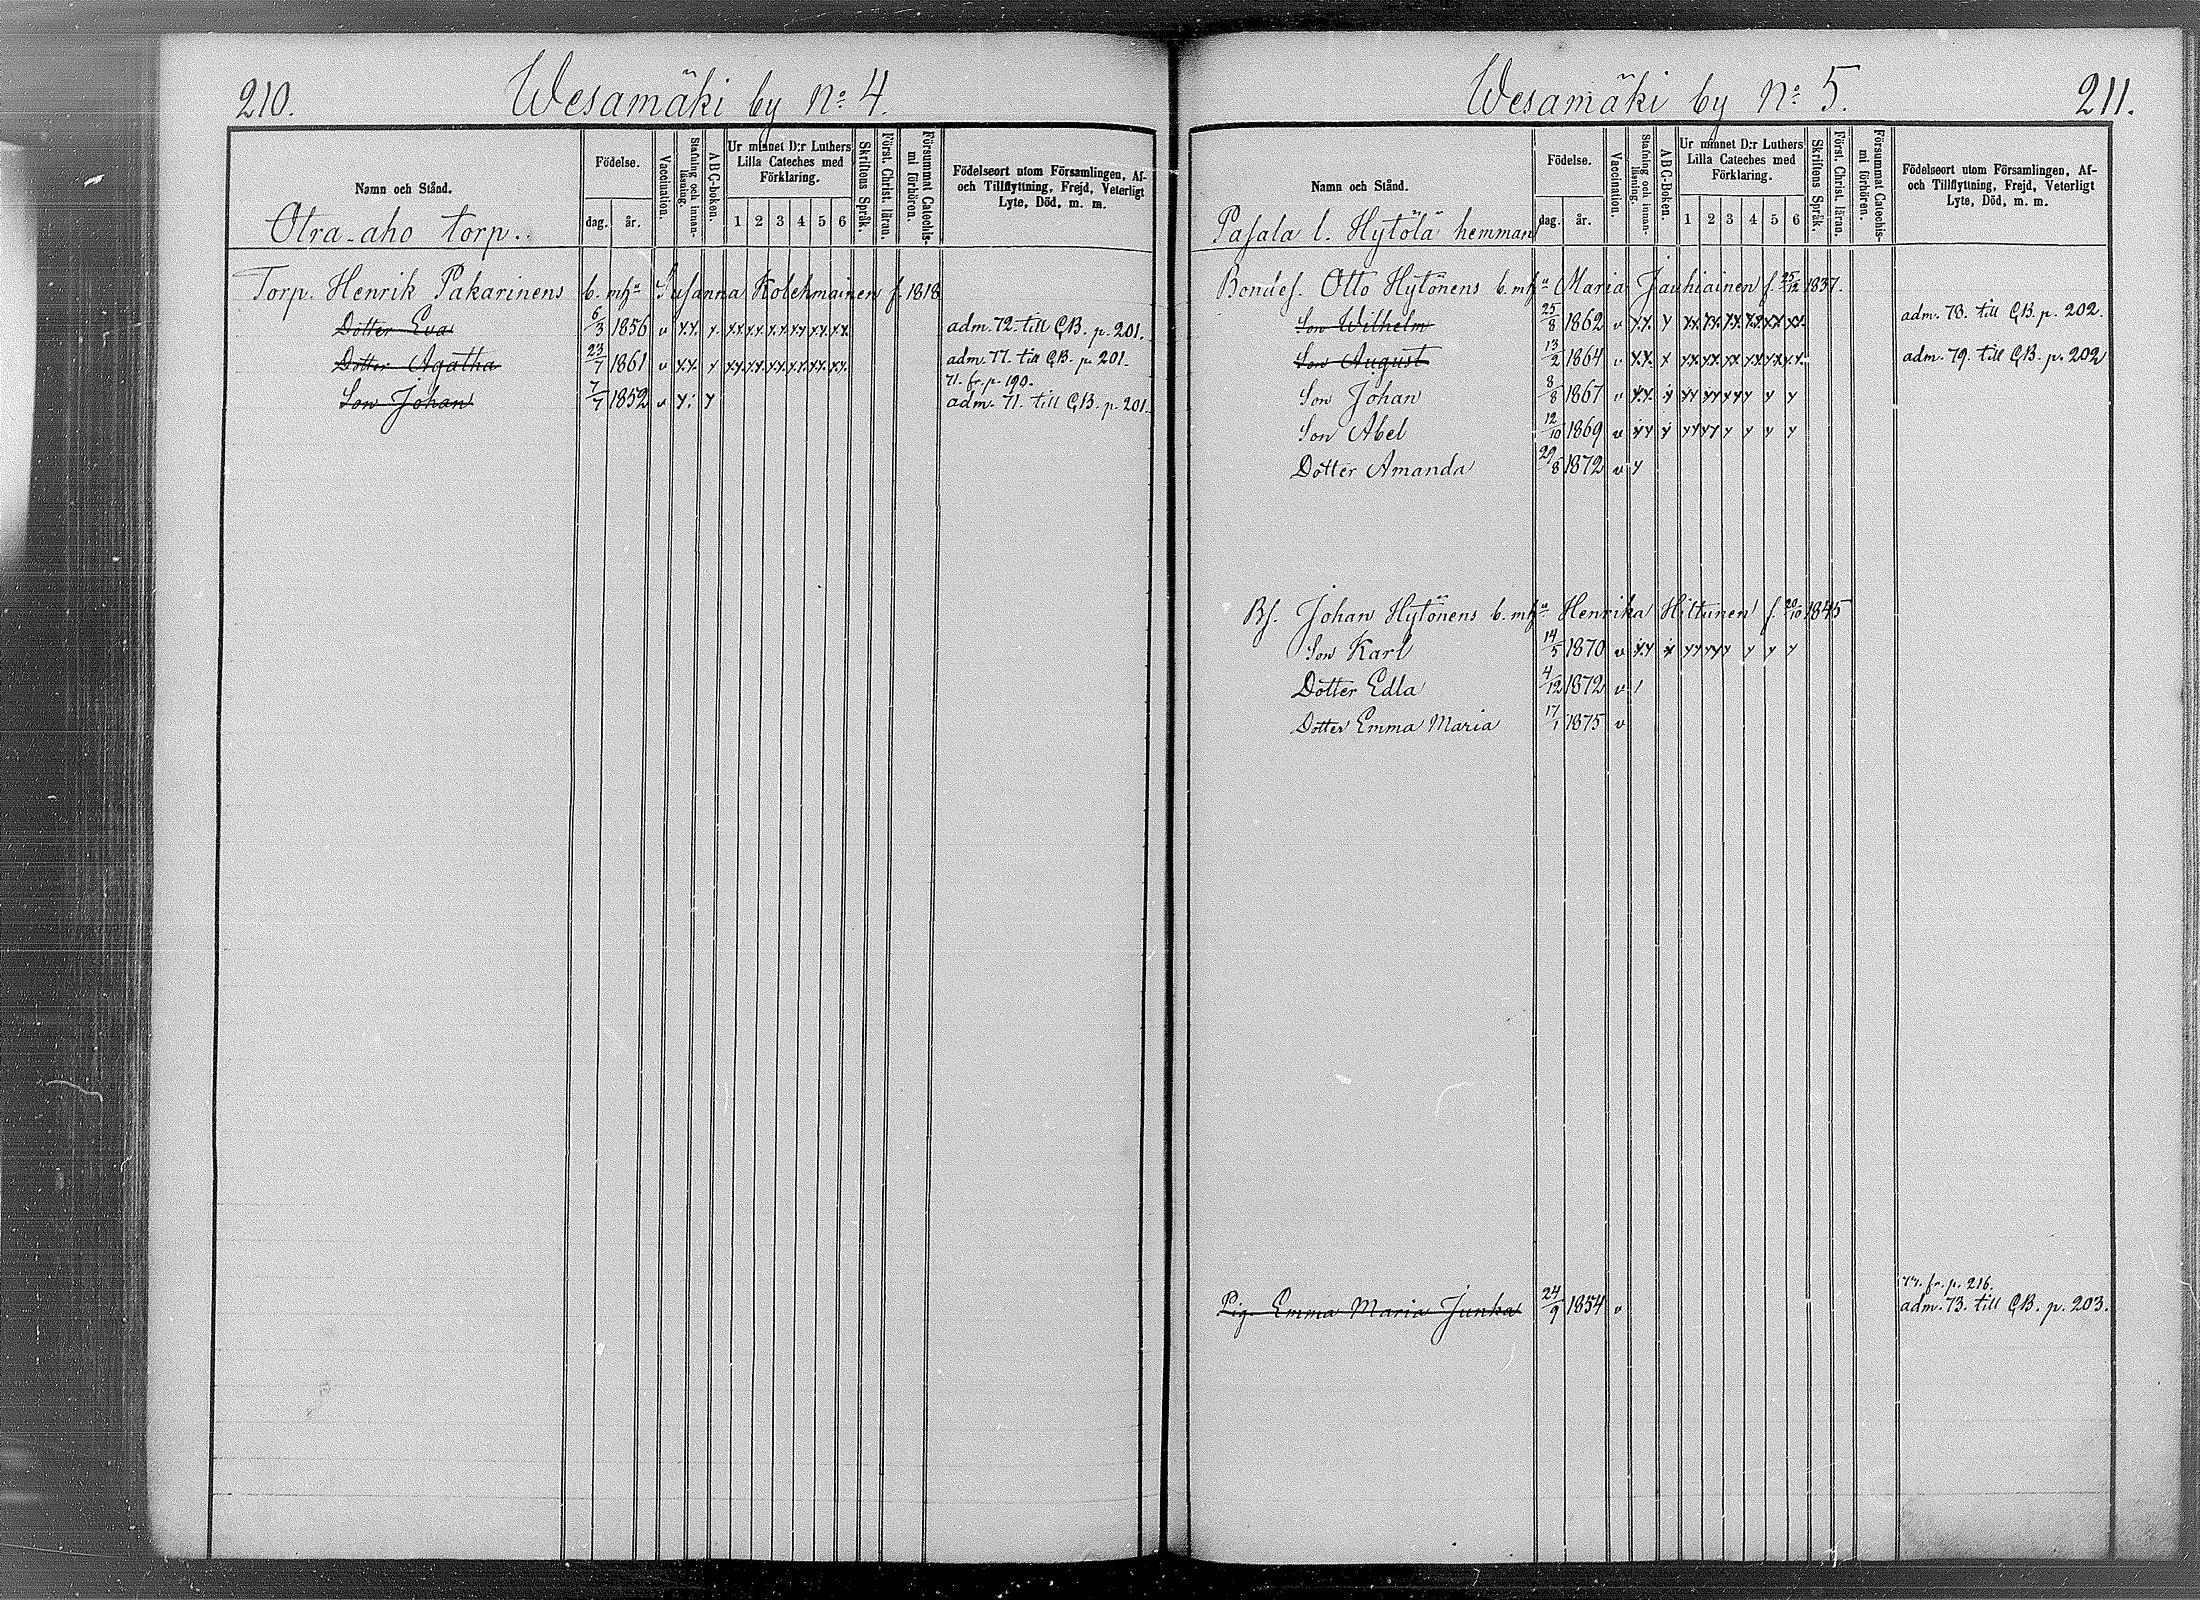 210.
Wesamäki by No 4.
Namn och Stånd.
Födelse.
dag.
år.
Vaccination.
Stafning och innanläsning.
A B C-boken.
Ur minnet D:r Luthers
Lilla Cateches med
Förklaring.
1 2 3 4 5 6
Skriftens Språk.
Först. Christ. läran.
Försummat Catechismi förhören.
Födelseort utom Församlingen, Af-
och Tillflyttning, Frejd, Veterligt
Lyte, Död, m. m.
Otra-aho torp.
Torp. Henrik Pakarinens b. m hu Susanna Kolehmainen f. 1818
Dotter Eva 6/3 1856 v x x x xx xx xx xx xx xx adm. 72. till C.B. p. 201.
Dotter Agatha 23/7 1861 v x x x xx xx xx xx xx xx adm. 77. till C.B. p. 201.
71. fr. p. 190.
Son Johan 7/7 1852 v x x adm. 71. till C.B. p. 201.
Wesamäki by No 5.
211.
Namn och Stånd.
Födelse.
dag.
år.
Vaccination.
Stafning och innanläsning.
A B C-boken.
Ur minnet D:r Luthers
Lilla Cateches med
Förklaring.
1 2 3 4 5 6
Skriftens Språk.
Först. Christ. läran.
Försummat Catechismi förhören.
Födelseort utom Församlingen, Af-
och Tillflyttning, Frejd, Veterligt
Lyte, Död, m. m.
Pasala l. Hytölä hemman
Bondes. Otto Hytönens b. m hu Maria Jauhiainen f. 25/12 1837.
Son Wilhelm 25/8 1862 v x x x xx xx xx xx xx xx adm. 78. till C.B. p. 202.
Son August 13/2 1864 v x x x xx xx xx xx xx xx adm. 79. till C.B. p. 202
Son Johan 8/8 1867 v x x x xx xx xx x x x
Son Abel 12/10 1869 v x x x xx xx x x x x
Dotter Amanda 29/8 1872 v x
Bs. Johan Hytönens b. m hu Henrika Hiltunen f. 20/10 1845
Son Karl 14/5 1870 v x x x xx xx x x x x
Dotter Edla 4/12 1872 v /
Dotter Emma Maria 17/1 1875 v
77. fr. p. 216.
Pig. Emma Maria Junka 24/9 1854 v adm. 73. till C.B. p. 203.